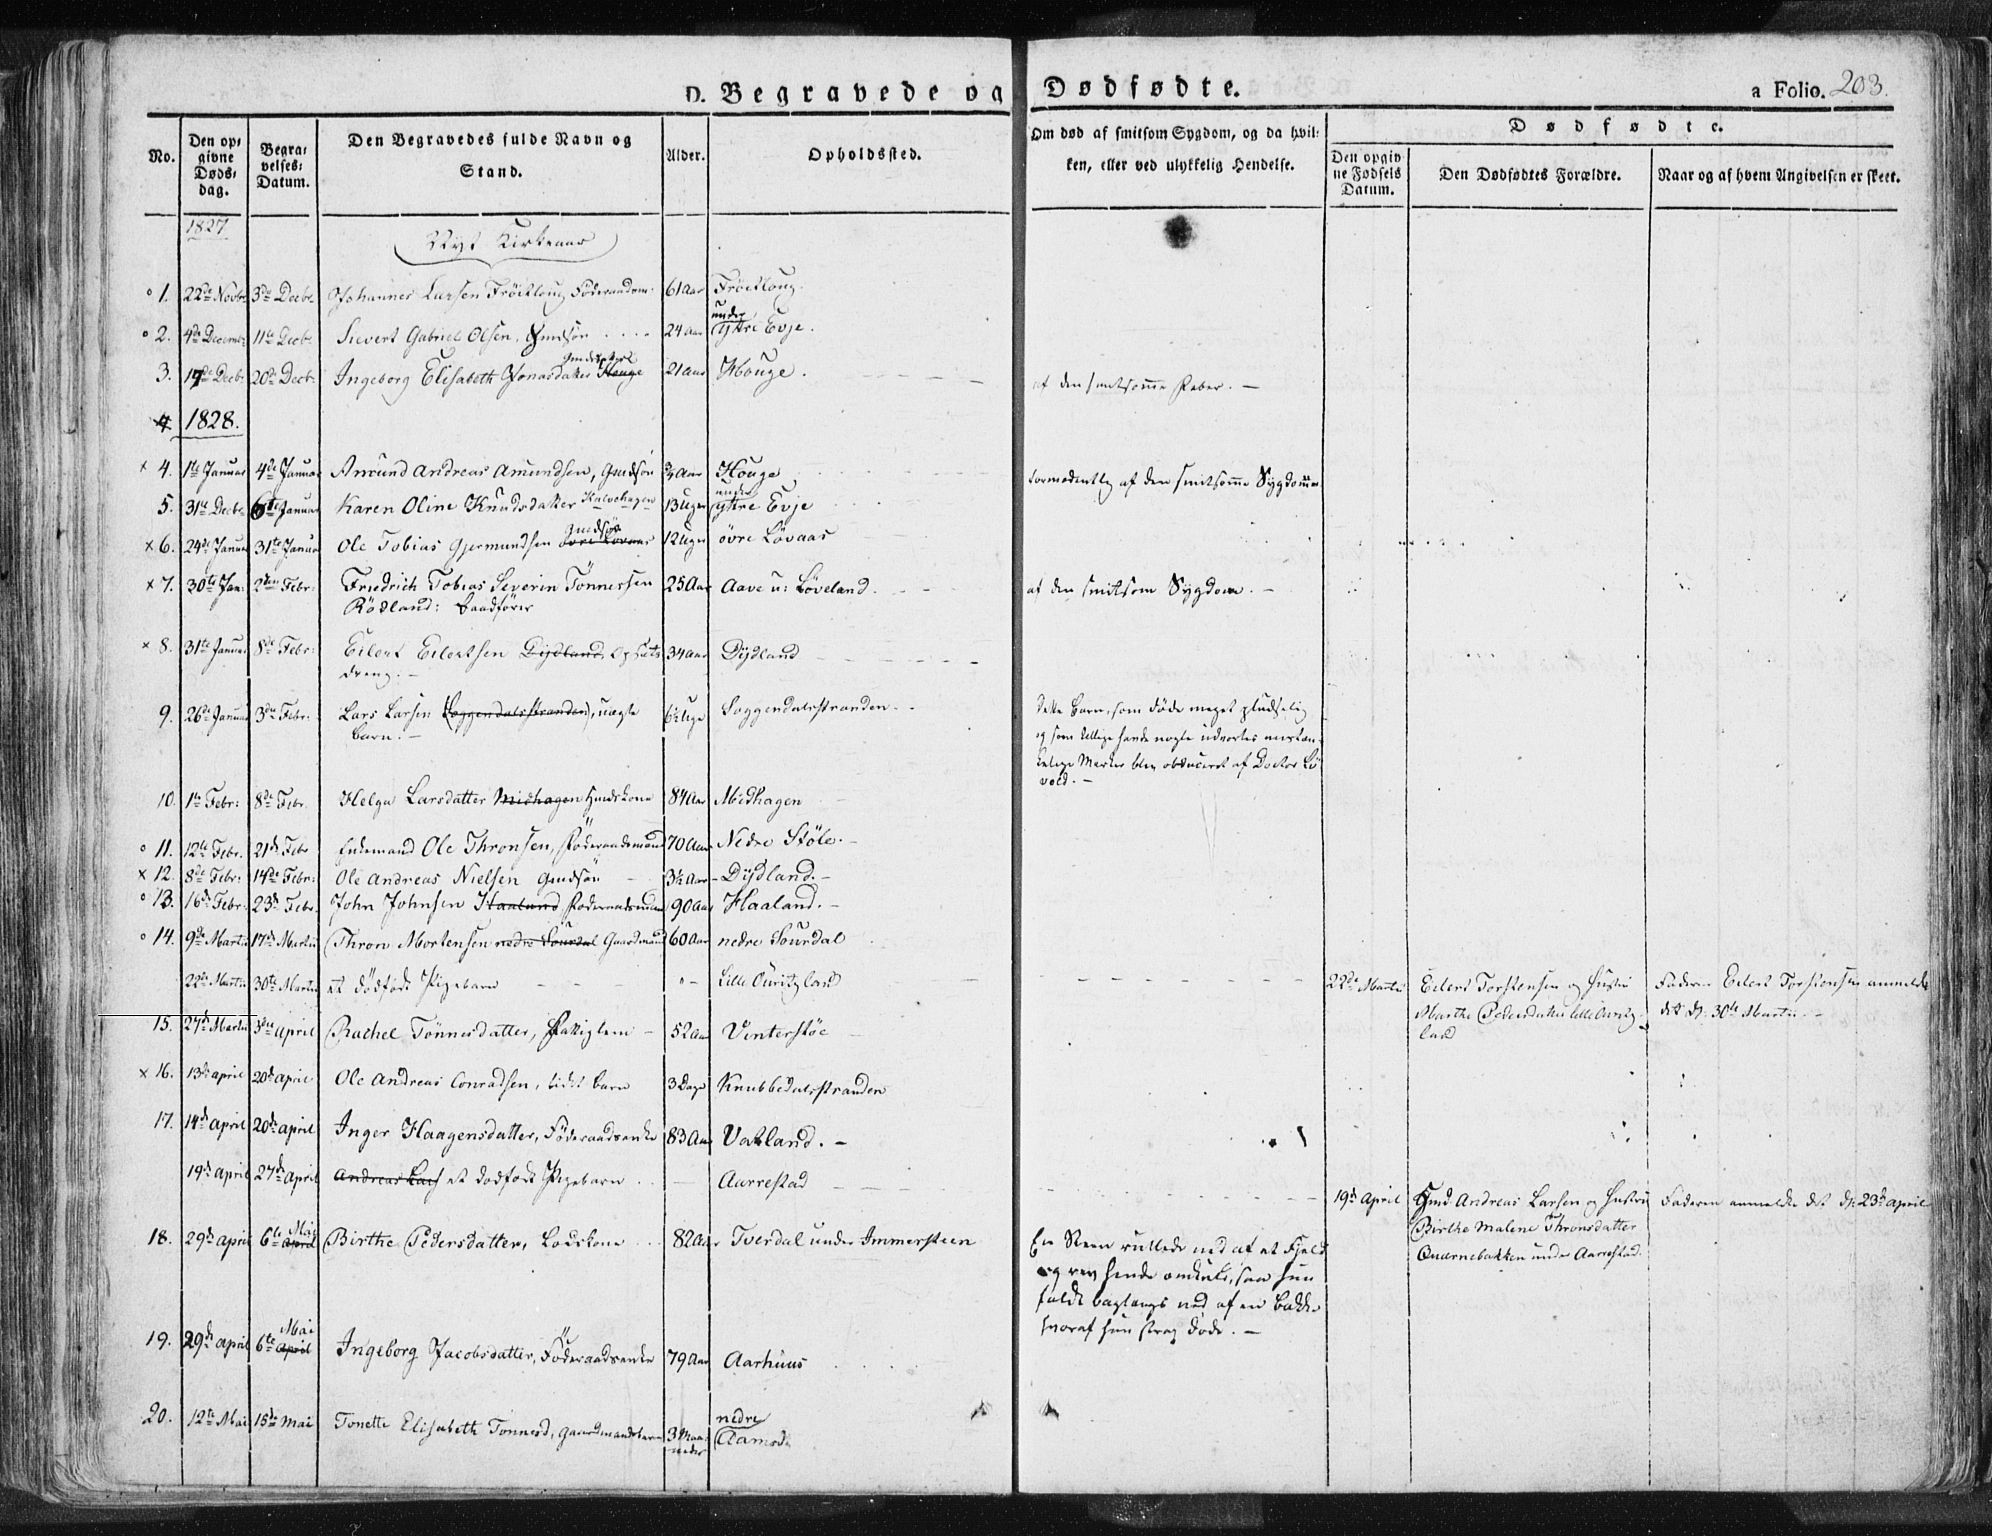 D. Begravede og Dødfødte. a Folio. 203.
No. Den opgivne Døds-dag. Begravelses-Datum. Den Begravedes fulde Navn og Stand. Alder. Opholdssted. Om død af smitsom Sygdom, og da hvilken, eller ved ulykkelig Hendelse. Dødfødte.
Den opgivne Fødsels Datum. Den Dødfødtes Forældre. Naar og af hvem Angivelsen er skeet.
1827
Nyt Kirkeaar
1. 22de Novbr 3die Decbr Johannes Larsen Fröitloug Föderaadsm. 61 Aar Fröitloug
2. 4de Decembr 11te Decbr Sievert Gabriel Olsen, Gmdsön 24 Aar under ÿttre Evje.
3. 17de Decbr 20de Decbr Ingeborg Elisabeth Jonasdatter Houge 21 Aar Houge. af den smitsomme Feber. —
1828.
x 4. 1te Januar 4de Januar Amund Andreas Amundsen, Gmdsön 3/4 Aar Houge formodentlig af den smitsomme Sygdom
5. 31te Decbr 6te Januar Karen Oline Knudsdatter Kalvehagen 13 Uger under ÿttre Evje
x 6. 24de Januar 31te Januar Ole Tobias Gjermundsen övre Lövaas Gmdsön 12 Uger övre Lövaas
x 7. 30te Jan: 2den Febr: Friedrich Tobias Severin Tönnessen 25 Aar Aave u: Löveland. af den smitsom Sygdom. —
Rödland: Baadförer
x 8. 31te Januar 8de Febr: Eilert Eilertsen Dÿdland, Opsitts 34 Aar Dÿdland
dreng. —
9. 26de Januar 3die Febr: Lars Larsen (Soggendalsstranden), uægte 6½ Uge Soggendalsstranden. Dette Barn, som döde meget pludselig
barn. — og som tillige havde nogle udvortes mistænkelige Mærker blev obduceret af Doctor Lövold. —
10. 1te Febr: 8de Febr. Helga Larsdatter Midhagen Huuskone 84 Aar Midhagen
11. 12te Febr. 21de Febr Enkemand Ole Thronsen, Föderaadsmand 70 Aar Nedre Stöle. —
x 12. 8de Febr: 14de Febr: Ole Andreas Nielsen Gmdsön 3½ Aar Dÿdland. —
13. 16de Febr. 23de Febr. John Johnsen Haaland Föderaadsmand 90 Aar Haaland. —
14. 9de Martii 17de Martii Thron Mortensen nedre Sourdal Gaardmand 60 Aar nedre Sourdal
22de Martii 30te Martii et dödfödt Pigebarn " — Lille Ouritzland 22de Martii Eilert Torstensen og Hustru Faderen Eilert Torstensen anmeldte
Marthe Pedersdatter lille Ouritzland det d: 30te Martii. —
15. 27de Martii 3die April Rachel Tönnesdatter, Fattiglem 52 Aar Vinterstöe
x 16. 13de April 20de April Ole Andreas Conradsen, lidet barn 3 Dage Knubbedalsstranden
17. 14de April 20de April Inger Haagensdatter, Föderaadsenke 83 Aar Vatland. —
19de April 27de April Andreas Lars et dödfödt Pigebarn — Aarrestad 19de April Gmd. Andreas Larsen og Hustru Faderen anmeldte det d: 23de April
Birthe Malene Thronsdatter
Quærnebakken under Aarrestad.
18. 29de April 6te Mai April Birthe Pedersdatter, Lodskone 82 Aar Tverdal under Immersteen En Steen rullede ned af et Fjeld
og rev hende omkuld, saa hun
faldt baglængs ned af en Bakke
hvoraf hun strax döde. —
19. 29de April 6te Mai April Ingeborg Jacobsdatter, Föderaadsenke 79 Aar Aarhuus
20. 12te Mai 15de Mai Tonette Elisabeth Tonnesd, Gaardmandsbarn 3 Maaneder nedre Aamod